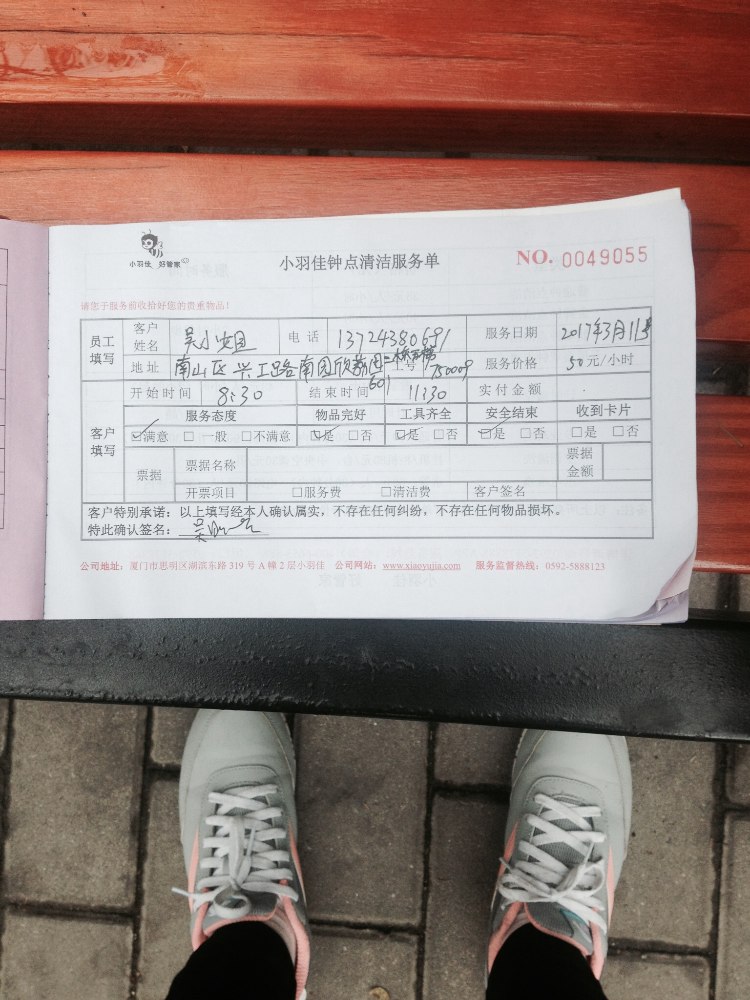 小羽佳 好管家
小羽佳钟点清洁服务单
NO. 0049055
请您于服务前收拾好您的贵重物品！
员工填写 客户姓名 吴小姐 电话 13724380691 服务日期 2017年3月11
地址 南山区兴工路南园欣荔园二栋 601 工号 750009 服务价格 50元/小时
开始时间 8:30 结束时间 11:30 实付金额
客户填写 服务态度 物品完好 工具齐全 安全结束 收到卡片
☑满意 □一般 □不满意 ☑是 □否 ☑是 □否 ☑是 □否 □是 □否
票据 票据名称 票据金额
开票项目 □服务费 □清洁费 客户签名
客户特别承诺：以上填写经本人确认属实，不存在任何纠纷，不存在任何物品损坏。
特此确认签名：
公司地址：厦门市思明区湖滨东路 319 号 A 幢 2 层小羽佳 公司网站：www.xiaoyujia.com 服务监督热线：0592-5888123